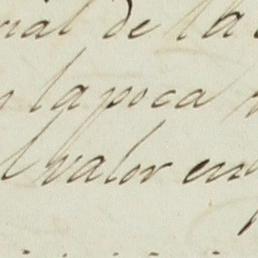 rial de la
la poca
l valor en